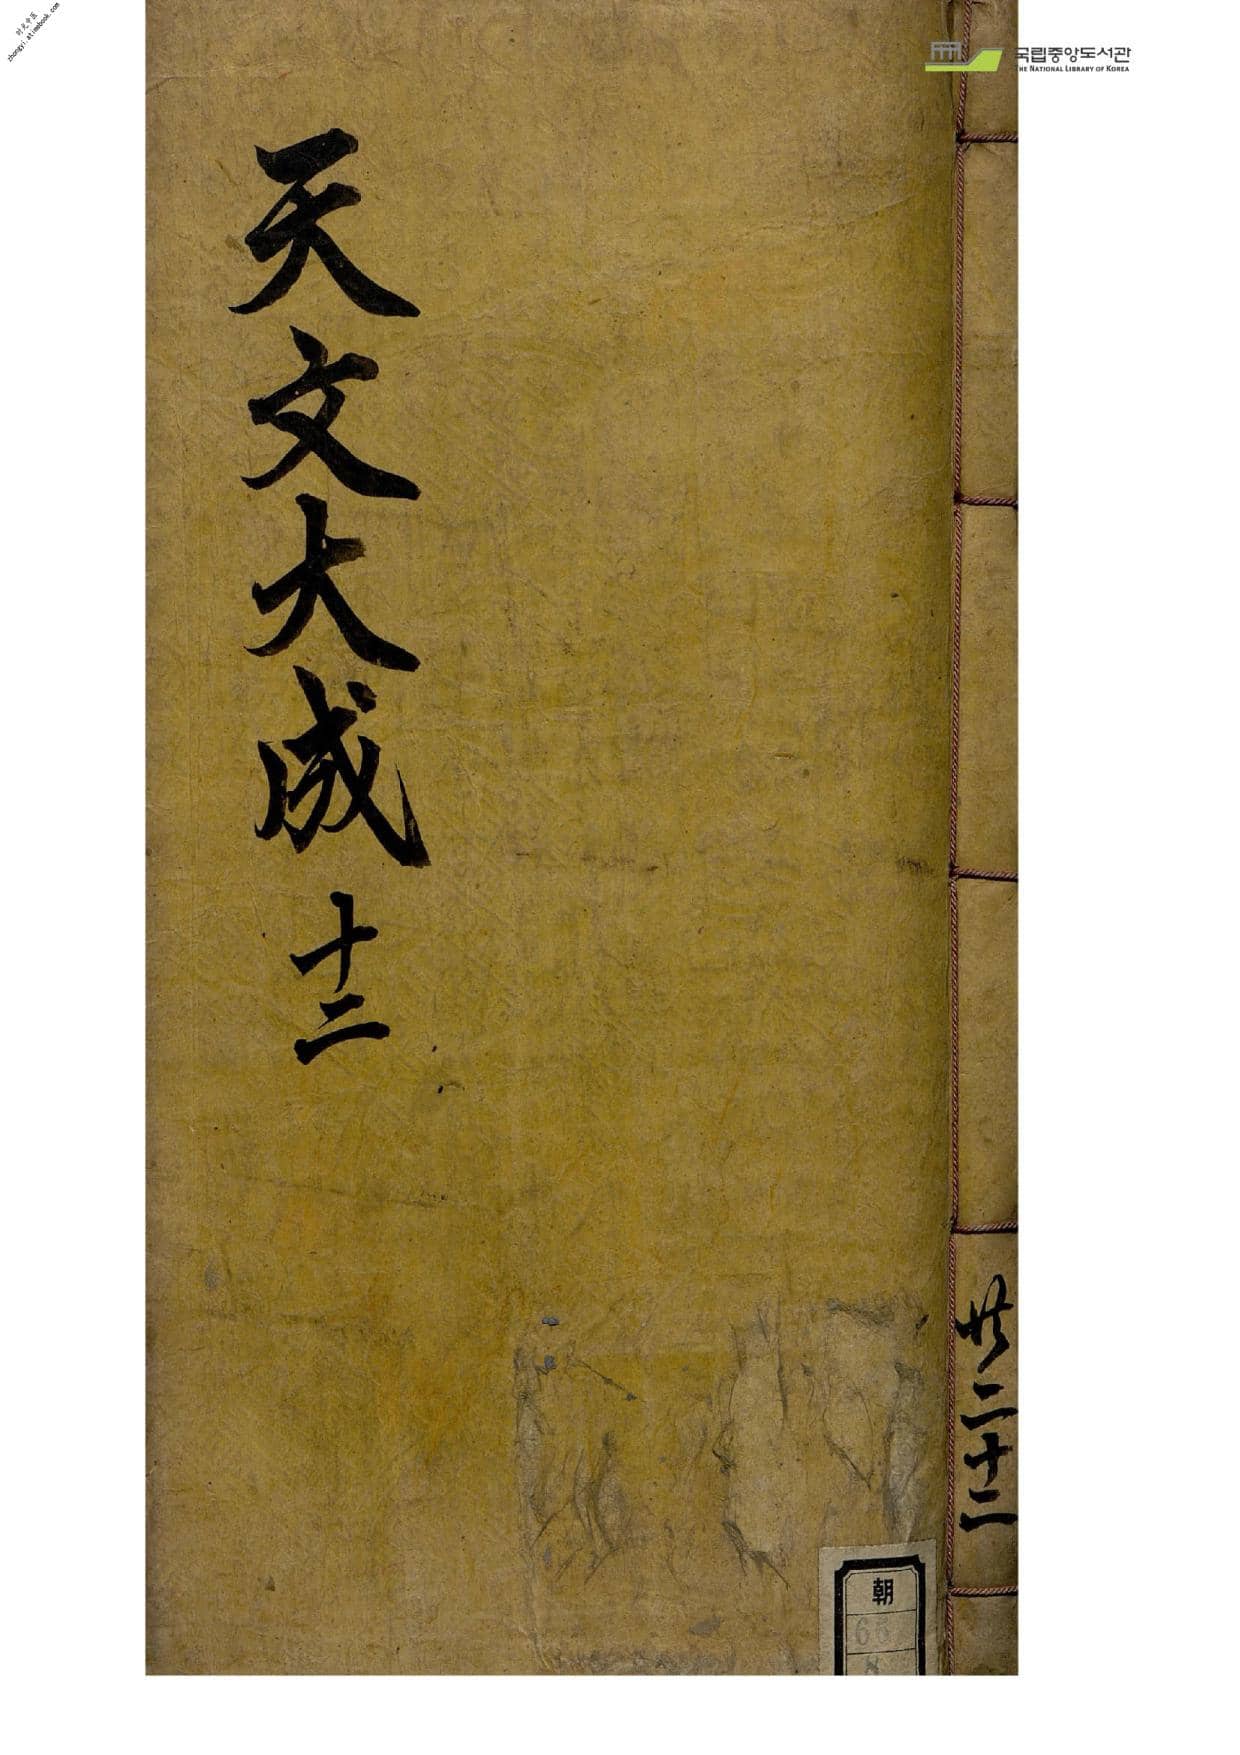 时光中医
zhongyi.atimebook.com
국립중앙도서관
THE NATIONAL LIBRARY OF KOREA
天文大成 十二
共二十二
朝
66
8